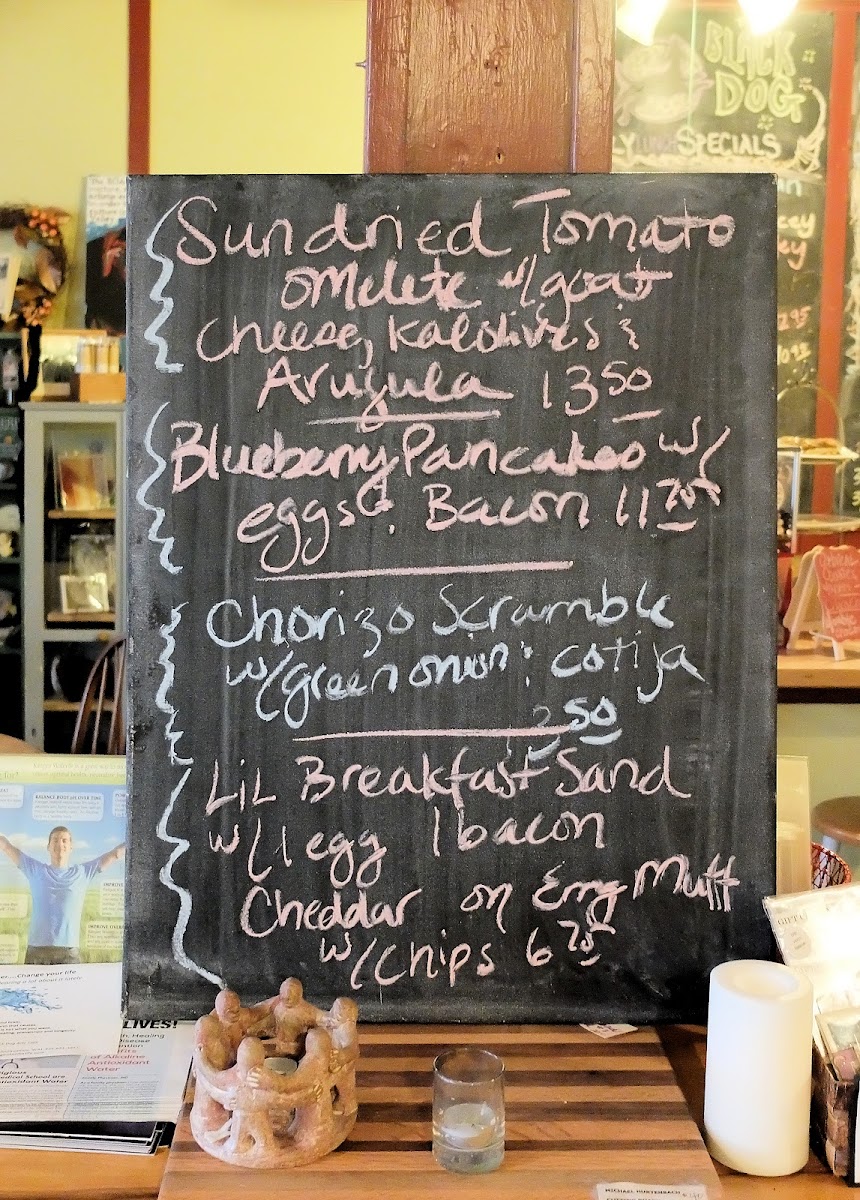 BLACK
DOG
SPECIALS
Sundried Tomato
omelete w/goat
cheese, Kalolives &
Arugula 13 50
Blueberry Pancakes w/
eggs & Bacon 11 75
Chorizo Scramble
w/green onion & cotija
50
LiL Breakfast Sand
w/ 1 egg 1 bacon
Cheddar on Eng Muff
w/Chips 6 75
Change your life
LIVES!
Alkaline
Antioxidant
Water
GIFT
MICHAEL